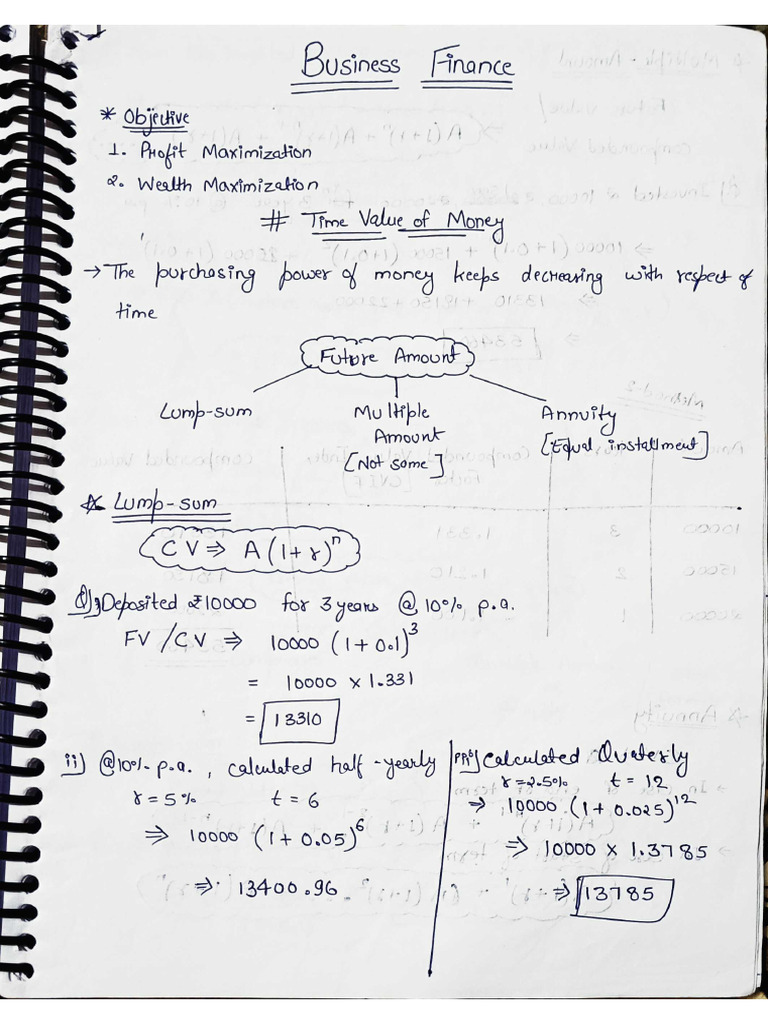 Business Finance
* Objective
1. Profit Maximization
2. Wealth Maximization
# Time Value of Money
→ The purchasing power of money keeps decreasing with respect of
time
Future Amount
Lump-sum
Multiple
Amount
[Not some]
Annuity
[Equal installment]
* Lump-sum
CV ⇒ A(1+r)^n
Q) i) Deposited ₹10000 for 3 years @ 10% p.a.
FV/CV ⇒ 10000 (1+0.1)^3
= 10000 × 1.331
= 13310
ii) @10% p.a., calculated half-yearly
r = 5% t = 6
⇒ 10000 (1+0.05)^6
⇒ 13400.96.
calculated Quaterly
r = 2.5% t = 12
⇒ 10000 (1+0.025)^12
⇒ 10000 × 1.3785
⇒ 13785